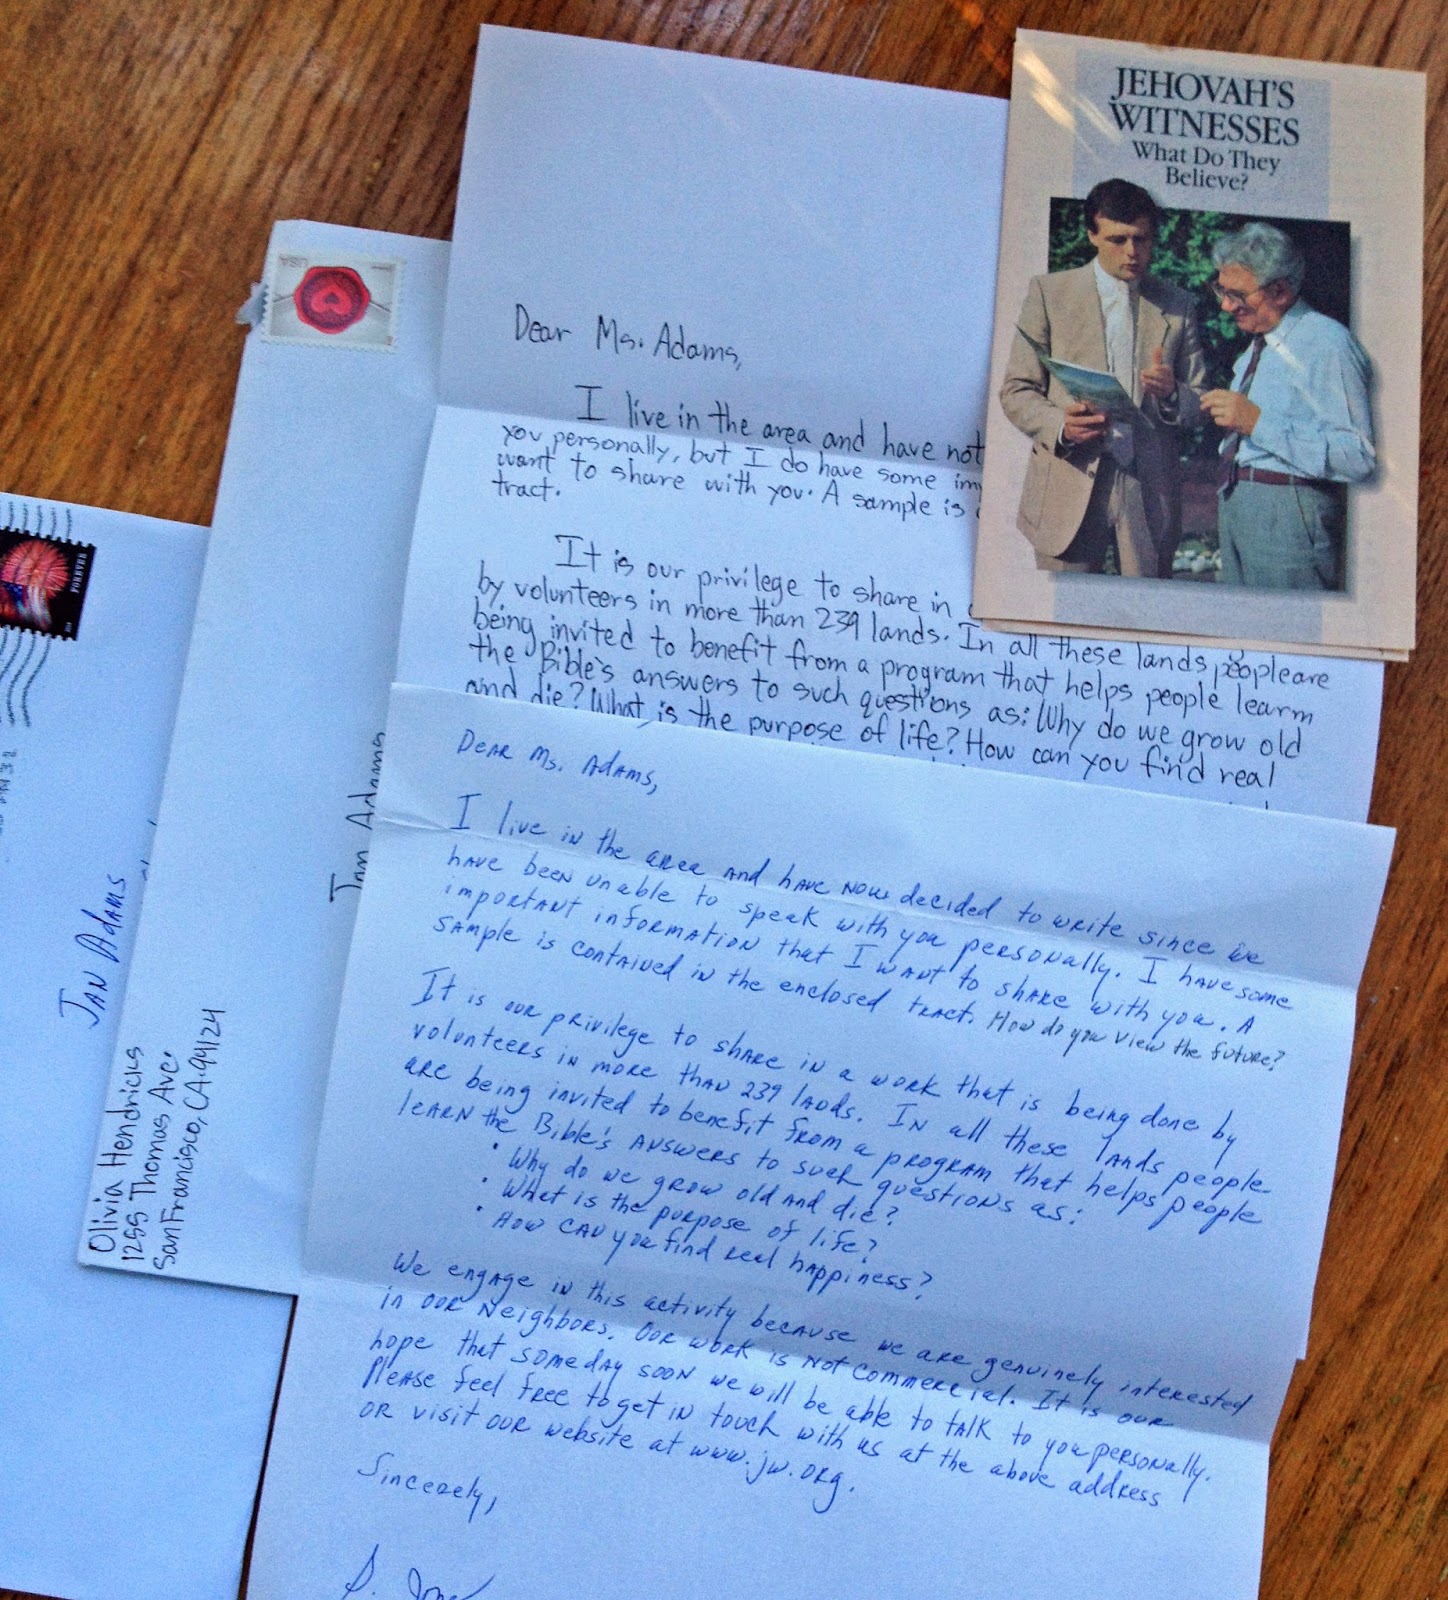 JEHOVAH'S
WITNESSES
What Do They
Believe?
USA
FOREVER
Dear Ms. Adams,
I live in the area and have not
you personally, but I do have some
want to share with you. A sample is
tract.
It is our privilege to share in
by volunteers in more than 239 lands. In all these lands people are
being invited to benefit from a program that helps people learm
the Bible's answers to such questions as: Why do we grow old
and die? What is the purpose of life? How can you find real
Dear Ms. Adams,
I live in the area and have now decided to write since we
have been unable to speak with you personally. I have some
important information that I want to share with you. A
sample is contained in the enclosed tract. How do you view the future?
It is our privilege to share in a work that is being done by
volunteers in more than 239 lands. In all these lands people
are being invited to benefit from a program that helps people
learn the Bible's answers to such questions as:
• Why do we grow old and die?
• What is the purpose of life?
• How can you find real happiness?
We engage in this activity because we are genuinely interested
in our neighbors. Our work is not commercial. It is our
hope that someday soon we will be able to talk to you personally.
Please feel free to get in touch with us at the above address
or visit our website at www.jw.org.
Sincerely,
Jan Adams
Jan Adams
Olivia Hendricks
1255 Thomas Ave.
San Francisco, CA 94124